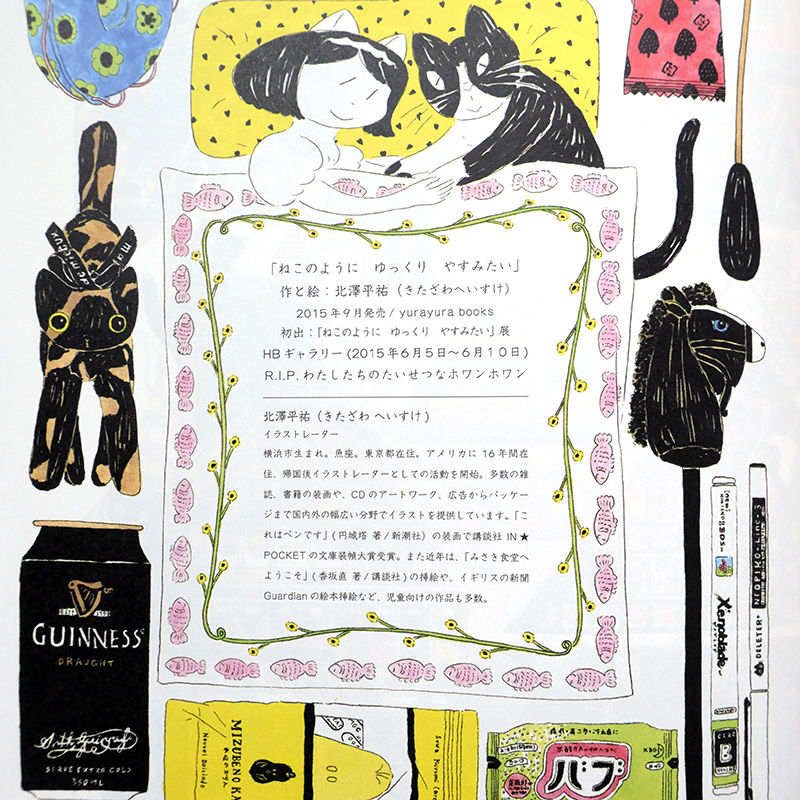 「ねこのように　ゆっくり　やすみたい」
作と絵：北澤平祐（きたざわへいすけ）
2015年9月発売/ yurayura books
初出：「ねこのように　ゆっくり　やすみたい」展
HBギャラリー(2015年6月5日〜6月10日)
R.I.P. わたしたちのたいせつなホワンホワン
北澤平祐（きたざわ へいすけ）
イラストレーター
横浜市生まれ。魚座。東京都在住。アメリカに 16 年間在
住、帰国後イラストレーターとしての活動を開始。多数の雑
誌、書籍の装画や、CDのアートワーク、広告からパッケー
ジまで国内外の幅広い分野でイラストを提供しています。「こ
れはペンです」(円城塔 著/新潮社）の装画で講談社 IN★
POCKETの文庫装幀大賞受賞。また近年は、「みさき食堂へ
ようこそ」(香坂直 著/講談社)の挿絵や、イギリスの新聞
Guardianの絵本挿絵など、児童向けの作品も多数。
GUINNESS
DRAUGHT
SERVE EXTRA COLD
350ML
MIZUBENO KA
バブ
Xenoblade
NEOPIKO-Line-3
DELETER
CERO
B